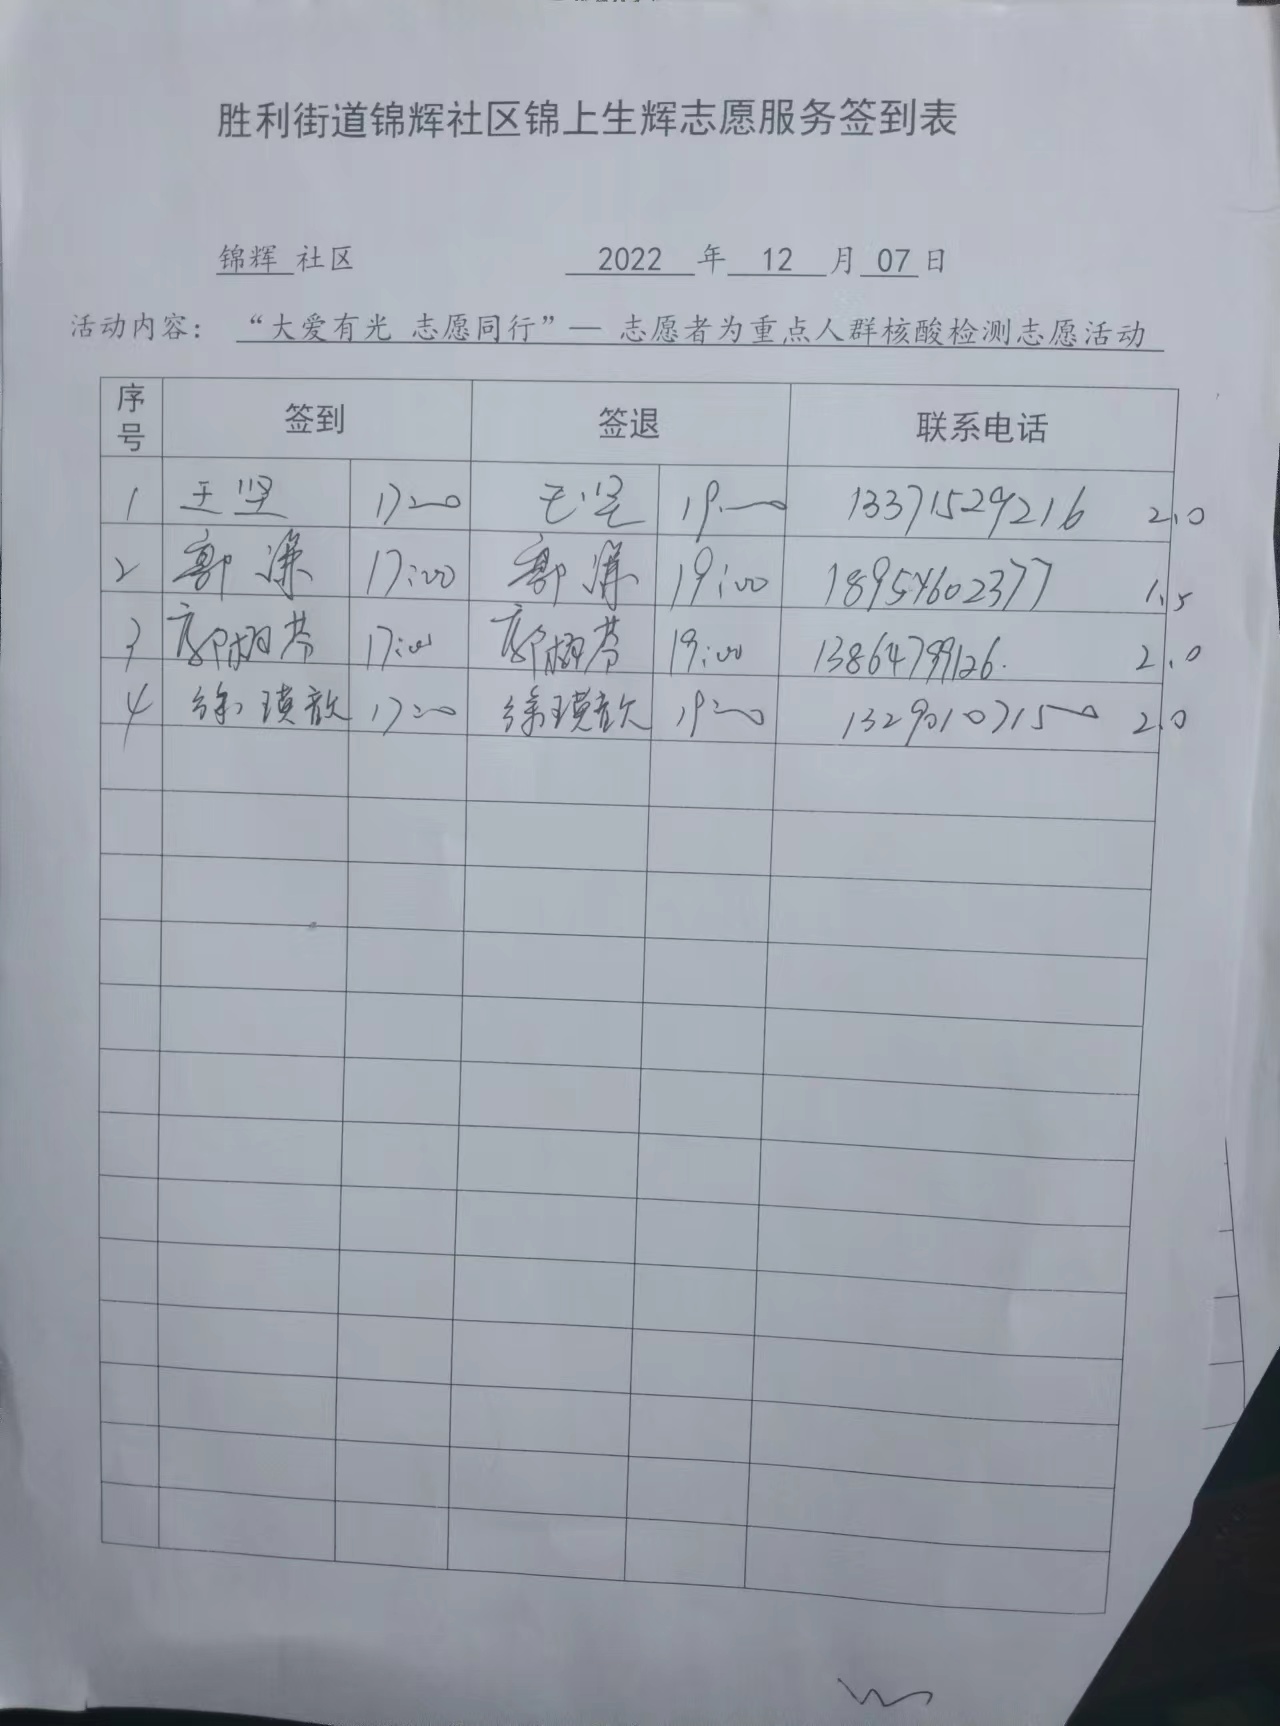 胜利街道锦辉社区锦上生辉志愿服务签到表
锦辉 社区 2022 年 12 月 07 日
活动内容： “大爱有光 志愿同行”— 志愿者为重点人群核酸检测志愿活动
序号 签到 签退 联系电话
1 王坚 17:00 王坚 19:00 13371529216 2.0
2 郭 17:00 郭 19:00 18954602377 1.5
3 郭 17:00 郭 19:00 2.0
4 徐瑛歆 17:00 徐瑛歆 19:00 13290107150 2.0